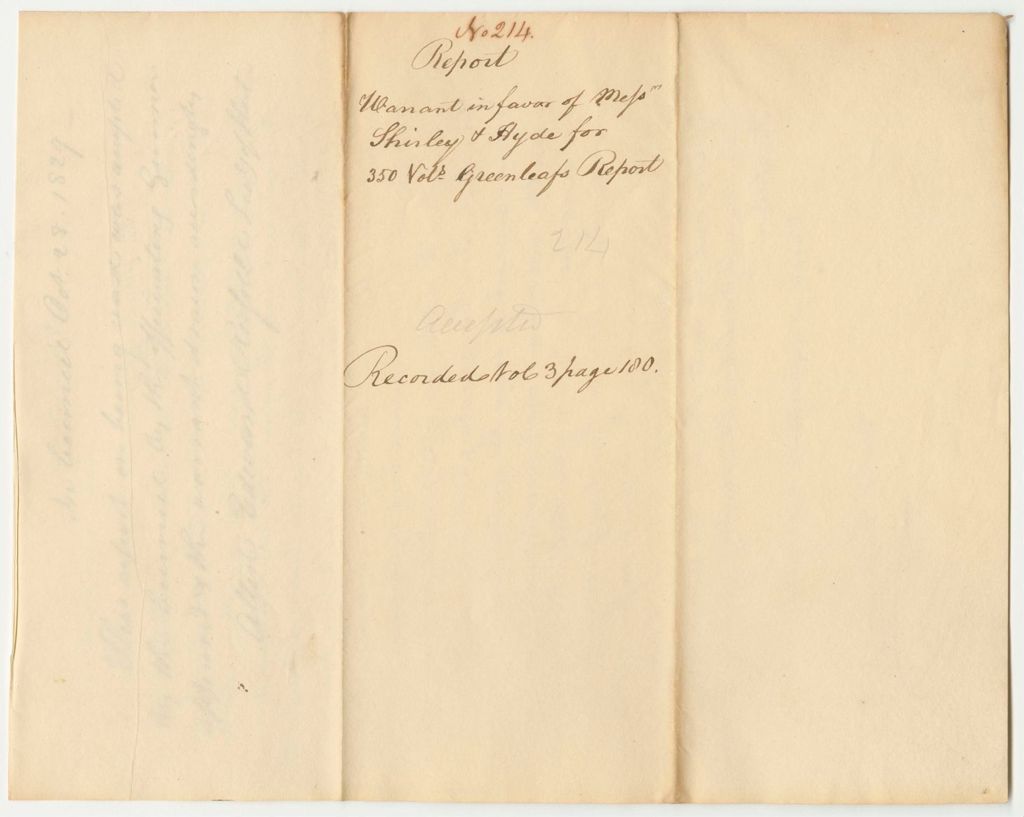 No 214.
Report
Warrant in favor of Mess^rs
Shirley & Hyde for
350 Vols. Greenleafs Report
214
Accepted
Recorded Vol 3 page 180.
In Council Oct. 28. 1829
This report on being read was accepted
by the Council, by the Governor
and the warrant drawn accordingly
Attest